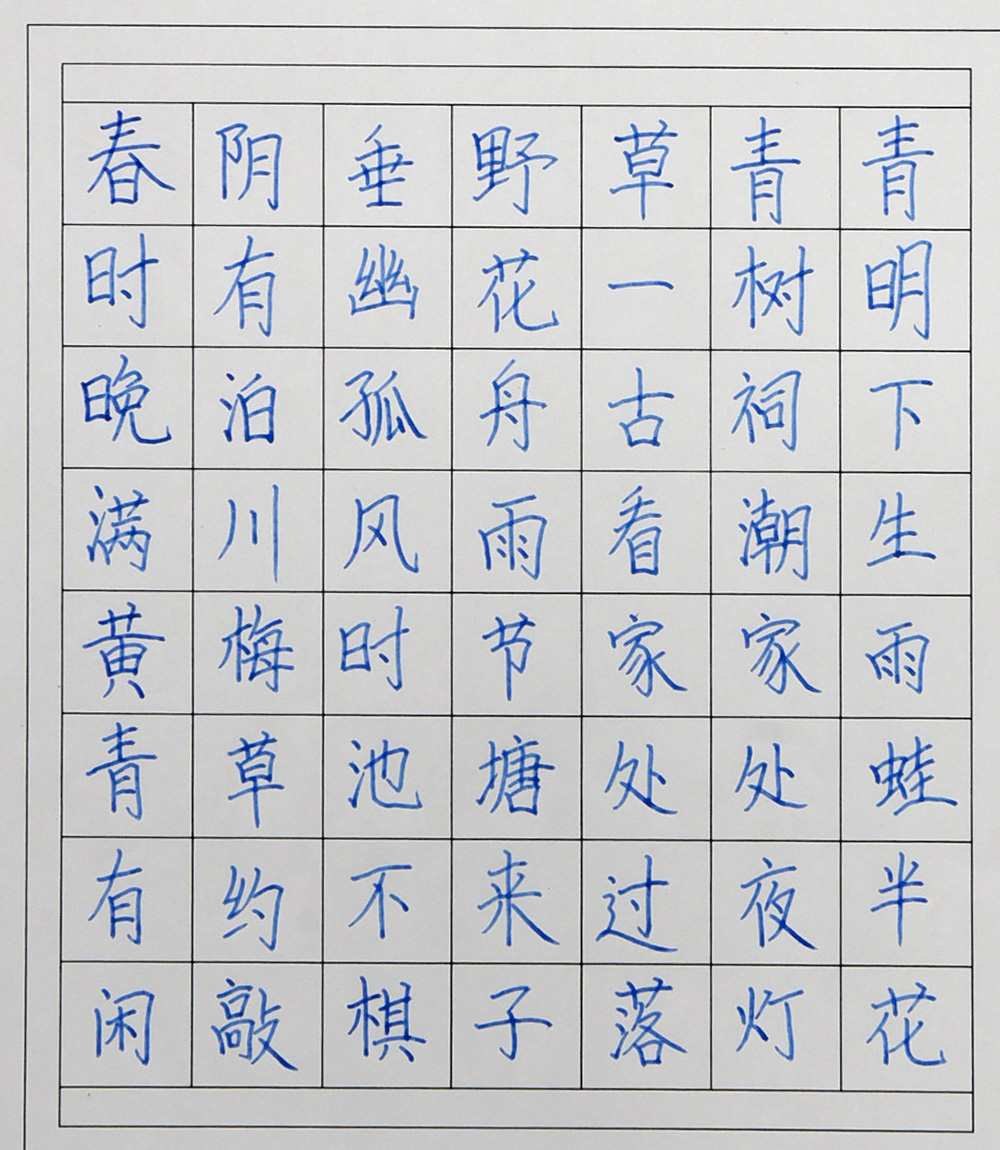 春阴垂野草青青
时有幽花一树明
晚泊孤舟古祠下
满川风雨看潮生
黄梅时节家家雨
青草池塘处处蛙
有约不来过夜半
闲敲棋子落灯花